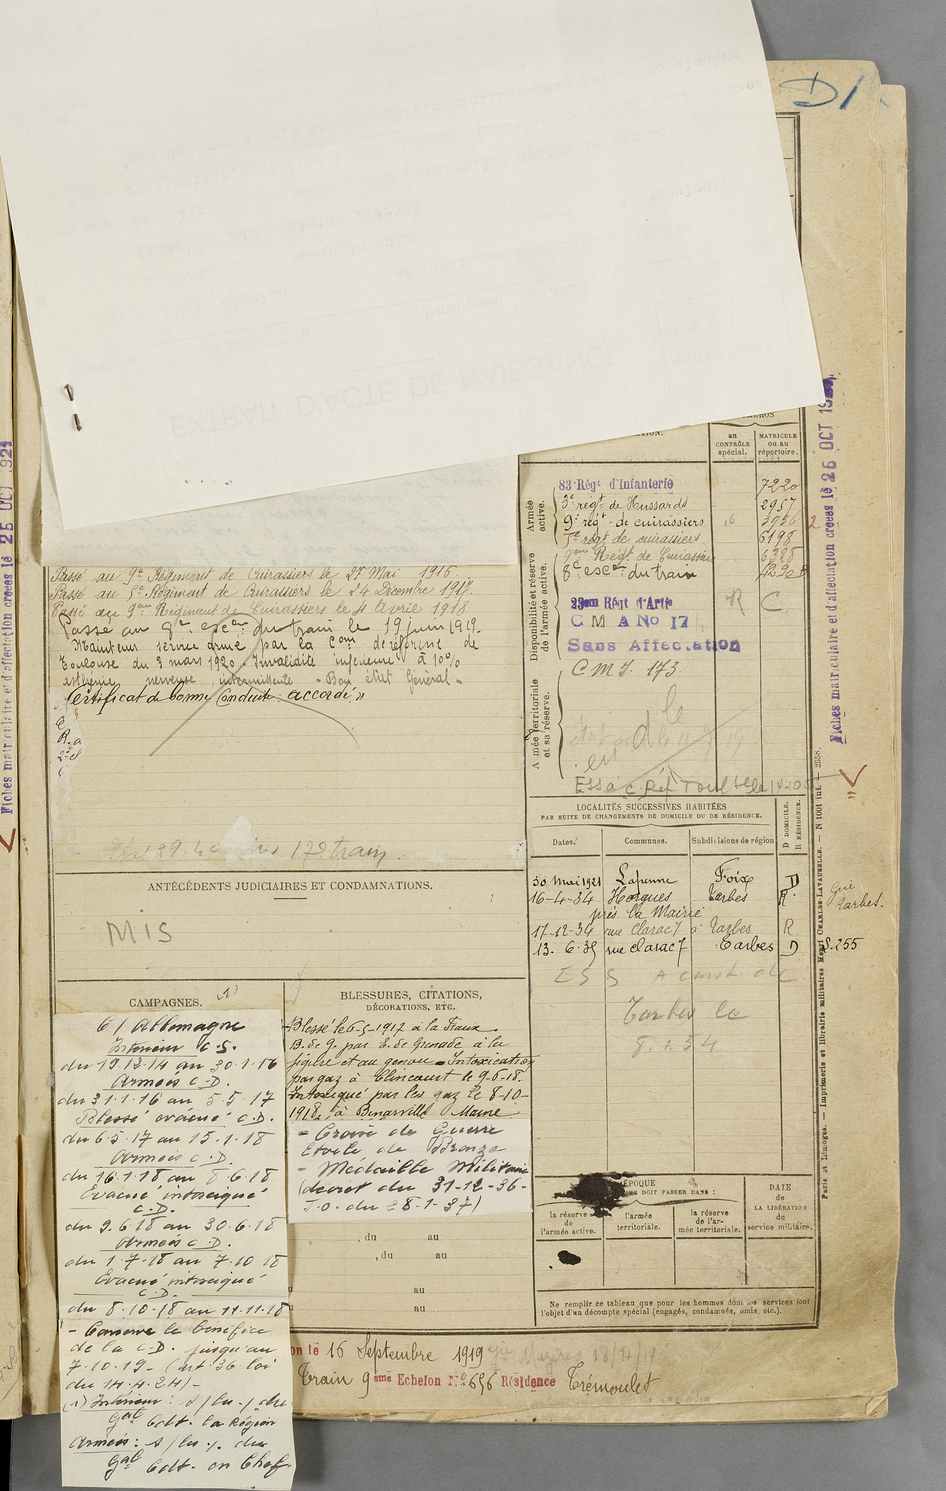 D/
EXTRAIT D'ACTE DE NAISSANCE
Passé au 9e Régiment de Cuirassiers le 27 Mai 1916.
Passé au 5e Régiment de Cuirassiers le 24 Décembre 1917.
Passé au 9ème Régiment de Cuirassiers le 4 Avril 1918
Passé au 8e escon du train le 19 juin 1919.
Maintenu service armé par la Com de réforme de
Toulouse du 3 mars 1920. Invalidité inférieure à 10%
asthénie nerveuse intermittente - Bon état Général -
Certificat de bonne Conduite "accordé"
172 train
ANTÉCÉDENTS JUDICIAIRES ET CONDAMNATIONS.
MIS
CAMPAGNES.
C/ Allemagne
Intérieur C.S.
du 19.12.14 au 30.1.16
Armées C.D.
du 31.1.16 au 5.5.17
Blessé évacué C.D.
du 6.5.17 au 15.1.18
Armées C.D.
du 16.1.18 au 8.6.18
Évacué intoxiqué
C.D.
du 9.6.18 au 30.6.18
Armées C.D.
du 1.7.18 au 7.10.18
Évacué intoxiqué
C.D.
du 8.10.18 au 11.11.18
- Conserve le bénéfice
de la C.D. jusqu'au
7.10.19 - (art 36 loi
du 14.4.24) -
(1) Intérieur : s/les /. du
Gal Cdt. la Région
Armées : s/les /. du
Gal Cdt. en Chef
BLESSURES, CITATIONS,
DÉCORATIONS, ETC.
Blessé le 6-5-1917 à la Fiaux
B. de g. par E. de grenade à la
figure et au genou = Intoxication
par gaz à Elincourt le 9-6-18.
Intoxiqué par les gaz le 8-10-
1918, à Binarville Marne
- Croix de Guerre
Étoile de Bronze
- Médaille Militaire
(décret du 31-12-36-
J.O. du 8-1-37)
, du au
, du au
au
au
on le 16 Septembre 1919
Train 9ème Echelon N° 656 Résidence Trémoulet
au
CONTRÔLE
spécial.
MATRICULE
ou au
répertoire.
Armée
active.
83 Régt d'Infanterie 7220
3e régt de Hussards 2957
9e régt de cuirassiers 3936
5e régt de cuirassiers 6198
9ème Régt de Cuirassiers 6328
Disponibilité et réserve
de l'armée active.
8e escon du train
23em Régt d'Artie R C.
C M A No 17
Sans Affectation
Armée territoriale
et sa réserve.
C M I. 173
LOCALITÉS SUCCESSIVES HABITÉES
PAR SUITE DE CHANGEMENTS DE DOMICILE OU DE RÉSIDENCE.
D DOMICILE.
R RÉSIDENCE.
Dates. Communes. Subdivisions de région
30 Mai 1921 Lapenne Foix D
16-4-34 Horgues Tarbes R.
près la Mairie
17-12-34 rue Clarac 7 à Tarbes R
13.6.35 rue Clarac 7 Tarbes D
S.255
Tarbes.
E S S
Tarbes le
8.1.34
ÉPOQUE
DOIT PASSER DANS :
la réserve
de
l'armée active.
l'armée
territoriale.
la réserve
de l'ar-
mée territoriale.
DATE
de
LA LIBÉRATION
du
service militaire.
Ne remplir ce tableau que pour les hommes dont les services font
l'objet d'un décompte spécial (engagés, condamnés, omis, etc.).
Fiches matriculaire et d'affectation créées le 25 OCT 1921
Fiches matriculaire et d'affectation créées le 25 OCT 1921
Paris et Limoges. — Imprimerie et librairie militaires Henri CHARLES-LAVAUZELLE. — N 1001 int. — 2338.